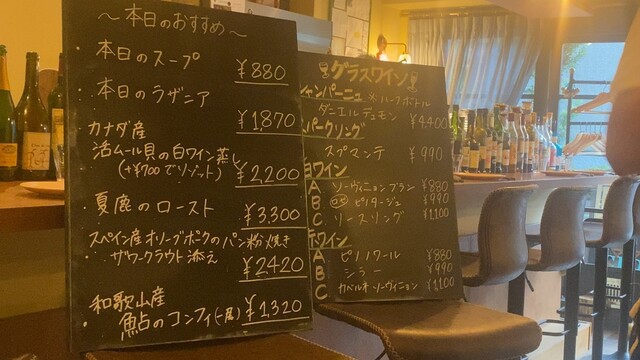 〜本日のおすすめ〜
・本日のスープ
¥880
・本日のラザニア
¥1,870
カナダ産
・活ムール貝の白ワイン蒸し
(+¥700でリゾット)
¥2,200
・夏鹿のロースト
¥3,300
スペイン産オリーブポークのパン粉焼き
ザワークラウト添え
¥2420
和歌山産
・鮎のコンフィ(一尾)
¥1,320
グラスワイン
シャンパーニュ ※ハーフボトル
ダニエル デュモン
¥4,400
スパークリング
スプマンテ ¥990
白ワイン
A ソーヴィニョン ブラン ¥880
B ピノタージュ ¥990
C リースリング ¥1,100
赤ワイン
A ピノノワール ¥880
B シラー ¥990
C カベルネ ソーヴィニョン ¥1,100